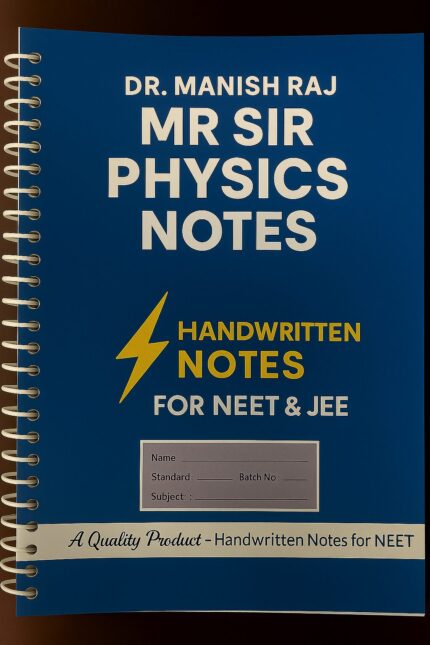 DR. MANISH RAJ
MR SIR
PHYSICS
NOTES
HANDWRITTEN
NOTES
FOR NEET & JEE
Name
Standard Batch No
Subject :
A Quality Product – Handwritten Notes for NEET